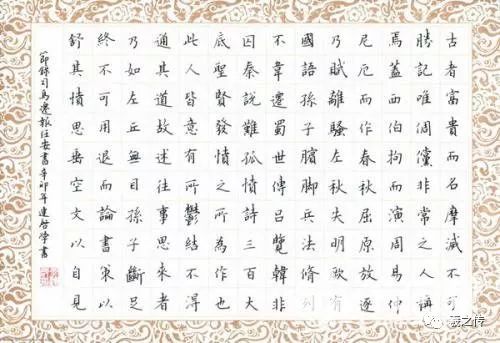 古者富貴而名摩滅不可
勝記唯倜儻非常之人稱
焉蓋西伯拘而演周易仲
尼厄而作春秋屈原放逐
乃賦離騷左秋失明厥有
國語孫子臏脚兵法脩列
不韋遷蜀世傳呂覽韓非
因秦說難孤憤詩三百大
底聖賢發憤之所為作也
此人皆意有所鬱結不得
通其道故述往事思來者
乃如左丘無目孫子斷足
終不可用退而論書策以
舒其憤思垂空文以自見
節錄司馬遷報任安書辛卯年連啓學書
羲之传